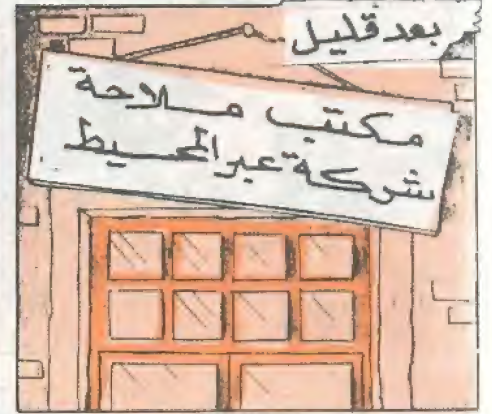 بعد قليل
مكتب ملاحة
شركة عبر المحيط